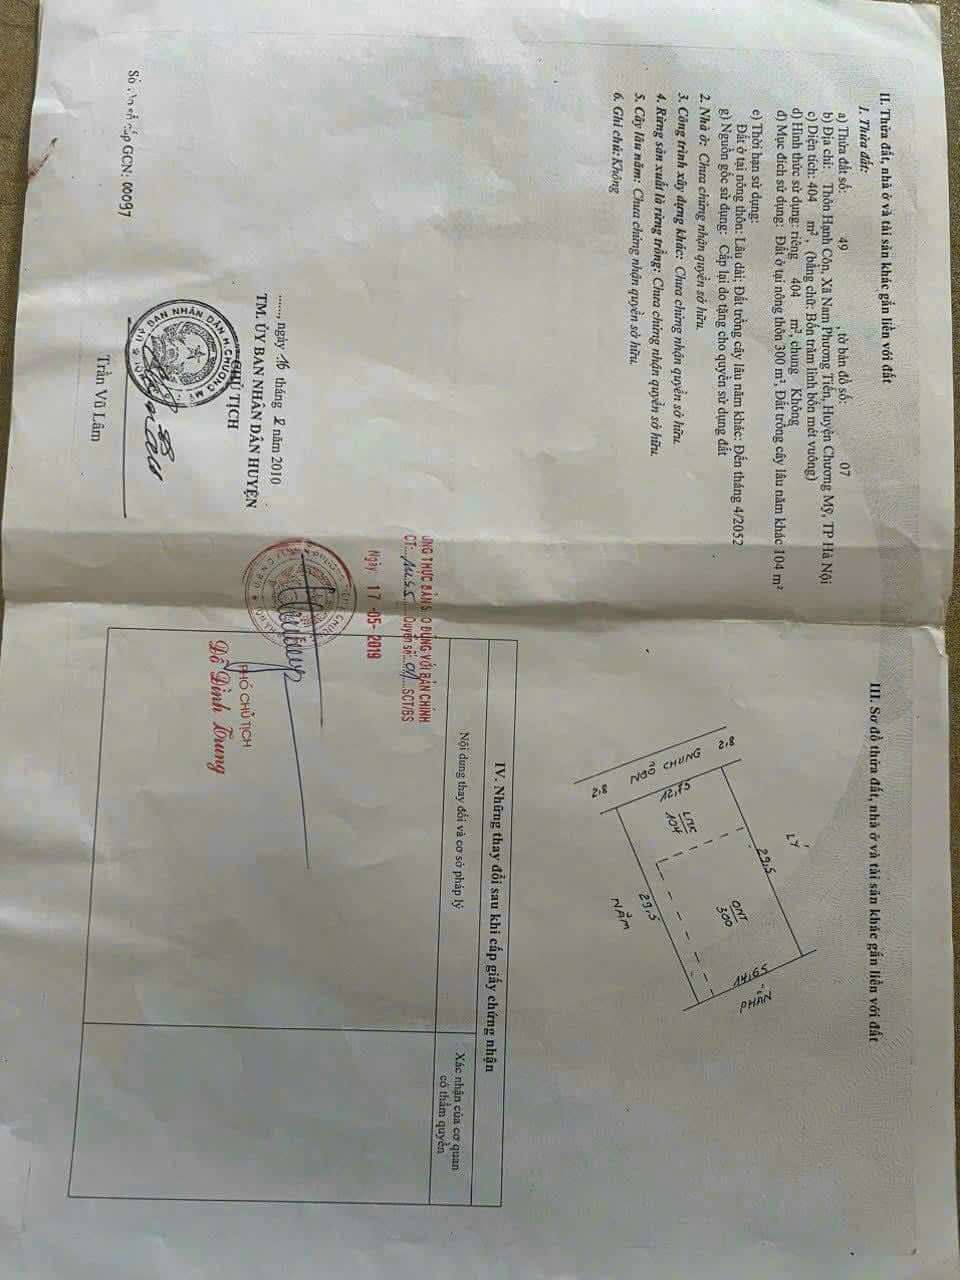 II. Thửa đất, nhà ở và tài sản khác gắn liền với đất
1. Thửa đất:
a) Thửa đất số: 49 , tờ bản đồ số: 07
b) Địa chỉ: Thôn Hạnh Côn, Xã Nam Phương Tiến, Huyện Chương Mỹ, TP Hà Nội
c) Diện tích: 404 m², (bằng chữ: Bốn trăm linh bốn mét vuông)
d) Hình thức sử dụng: riêng 404 m², chung Không
đ) Mục đích sử dụng: Đất ở tại nông thôn 300 m², Đất trồng cây lâu năm khác 104 m²
e) Thời hạn sử dụng:
Đất ở tại nông thôn: Lâu dài; Đất trồng cây lâu năm khác: Đến tháng 4/2052
g) Nguồn gốc sử dụng: Cấp lại do tặng cho quyền sử dụng đất
2. Nhà ở: Chưa chứng nhận quyền sở hữu.
3. Công trình xây dựng khác: Chưa chứng nhận quyền sở hữu.
4. Rừng sản xuất là rừng trồng: Chưa chứng nhận quyền sở hữu.
5. Cây lâu năm: Chưa chứng nhận quyền sở hữu.
6. Ghi chú: Không
......, ngày 16 tháng 8 năm 2010
TM. ỦY BAN NHÂN DÂN HUYỆN
CHỦ TỊCH
ỦY BAN NHÂN DÂN H. CHƯƠNG MỸ
Trần Vũ Lâm
Số vào sổ cấp GCN: 00097
III. Sơ đồ thửa đất, nhà ở và tài sản khác gắn liền với đất
LÝ
2,8
NGÕ CHUNG
2,8
12,75
LNC
104
29,5
ONT
300
29,5
NĂM
14,65
PHẤN
IV. Những thay đổi sau khi cấp giấy chứng nhận
Nội dung thay đổi và cơ sở pháp lý
Xác nhận của cơ quan
có thẩm quyền
ỨNG THỰC BẢN SAO ĐÚNG VỚI BẢN CHÍNH
CT: Quyển số: 01 SCT/BS
Ngày 17-05-2019
PHÓ CHỦ TỊCH
Đỗ Đình Trung